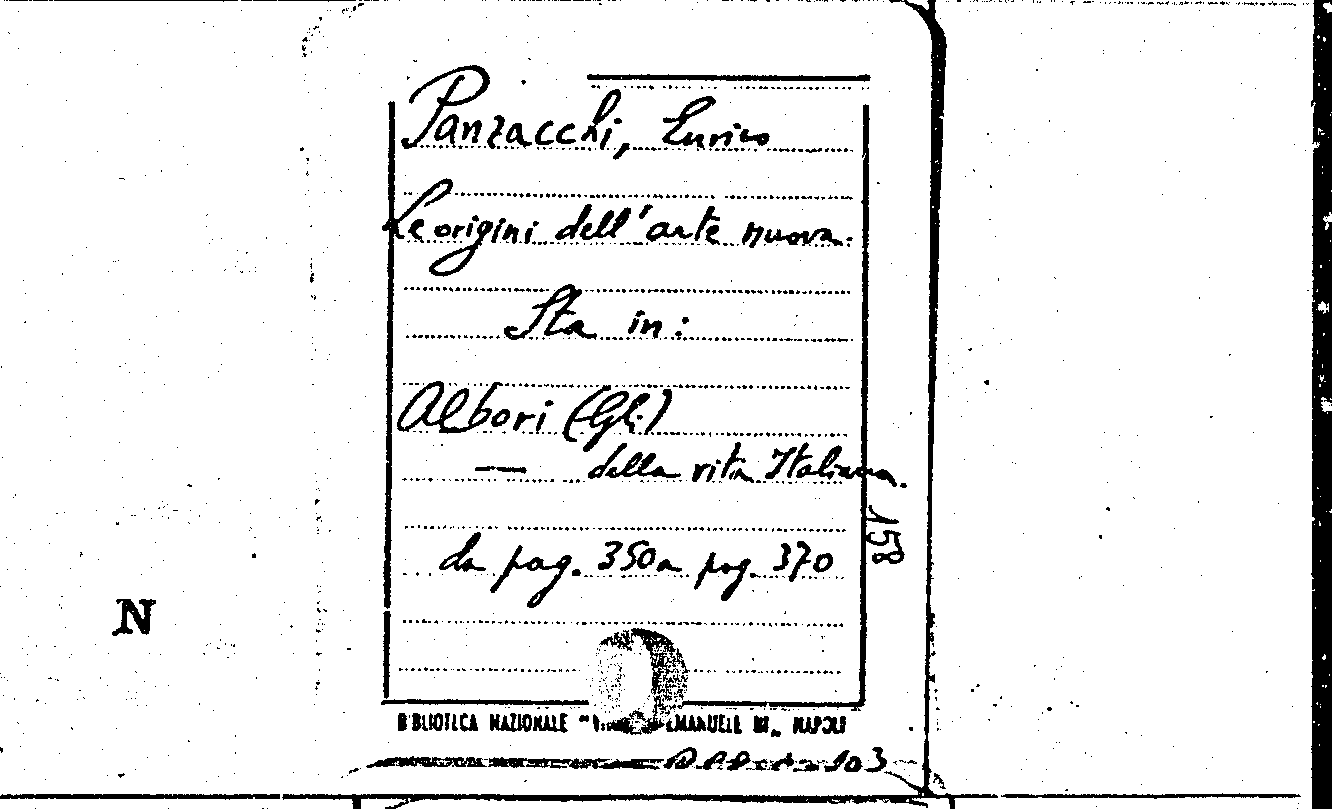 Panzacchi, Enrico
Le origini dell'arte nuova.
Sta in:
Albori (Gli)
— della vita Italiana.
158
da pag. 350 a pag. 370
N
BIBLIOTECA NAZIONALE " EMANUELE III„ NAPOLI
103